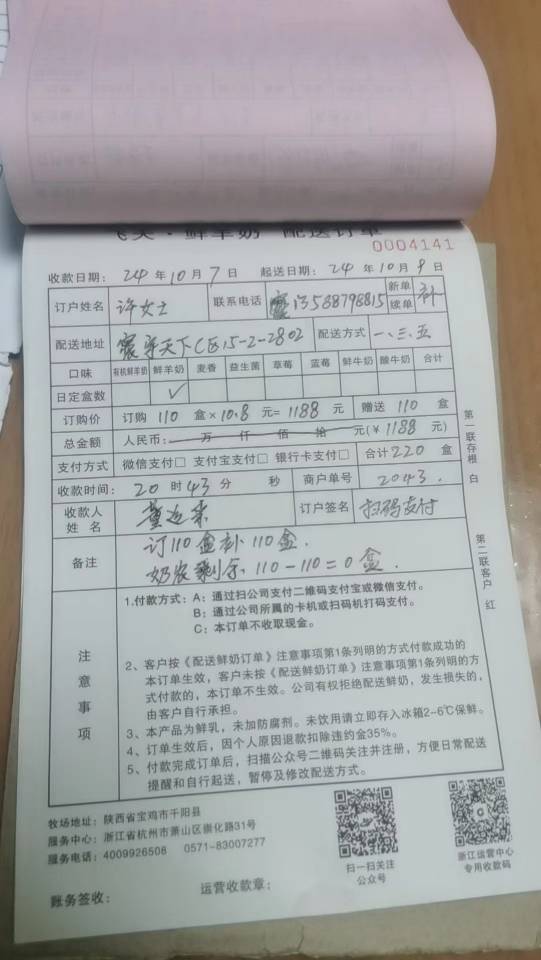 鲜羊奶 配送订单
0004141
收款日期: 24 年 10 月 7 日 起送日期: 24 年 10 月 9 日
订户姓名 许女士 联系电话 13588798815 新单 续单 补
配送地址 寰宇天下C区15-2-2802 配送方式 一、三、五
口味 有机鲜羊奶 鲜羊奶 麦香 益生菌 草莓 蓝莓 鲜牛奶 酸牛奶 合计
日定盒数 ✓
订购价 订购 110 盒×10.8 元=1188 元 赠送 110 盒
总金额 人民币: 万 仟 佰 拾 元(¥ 1188 元)
支付方式 微信支付□ 支付宝支付□ 银行卡支付□ 合计220 盒
收款时间: 20 时 43 分 秒 商户单号 2043.
收款人姓名 订户签名 扫码支付
备注 订110盒补110盒.
奶农剩余:110-110=0盒.
注意事项
1.付款方式: A: 通过扫公司支付二维码支付宝或微信支付。
B: 通过公司所属的卡机或扫码机打码支付。
C: 本订单不收取现金。
2、客户按《配送鲜奶订单》注意事项第1条列明的方式付款成功的
本订单生效，客户未按《配送鲜奶订单》注意事项第1条列明的方
式付款的，本订单不生效。公司有权拒绝配送鲜奶，发生损失的，
由客户自行承担。
3、本产品为鲜乳，未加防腐剂。未饮用请立即存入冰箱2-6℃保鲜。
4、订单生效后，因个人原因退款扣除违约金35%。
5、付款完成订单后，扫描公众号二维码关注并注册，方便日常配送
提醒和自行起送，暂停及修改配送方式。
第一联存根 白
第二联客户 红
牧场地址: 陕西省宝鸡市千阳县
服务中心: 浙江省杭州市萧山区崇化路31号
服务电话: 4009926508 0571-83007277
扫一扫关注
公众号
浙江运营中心
专用收款码
账务签收: 运营收款章: